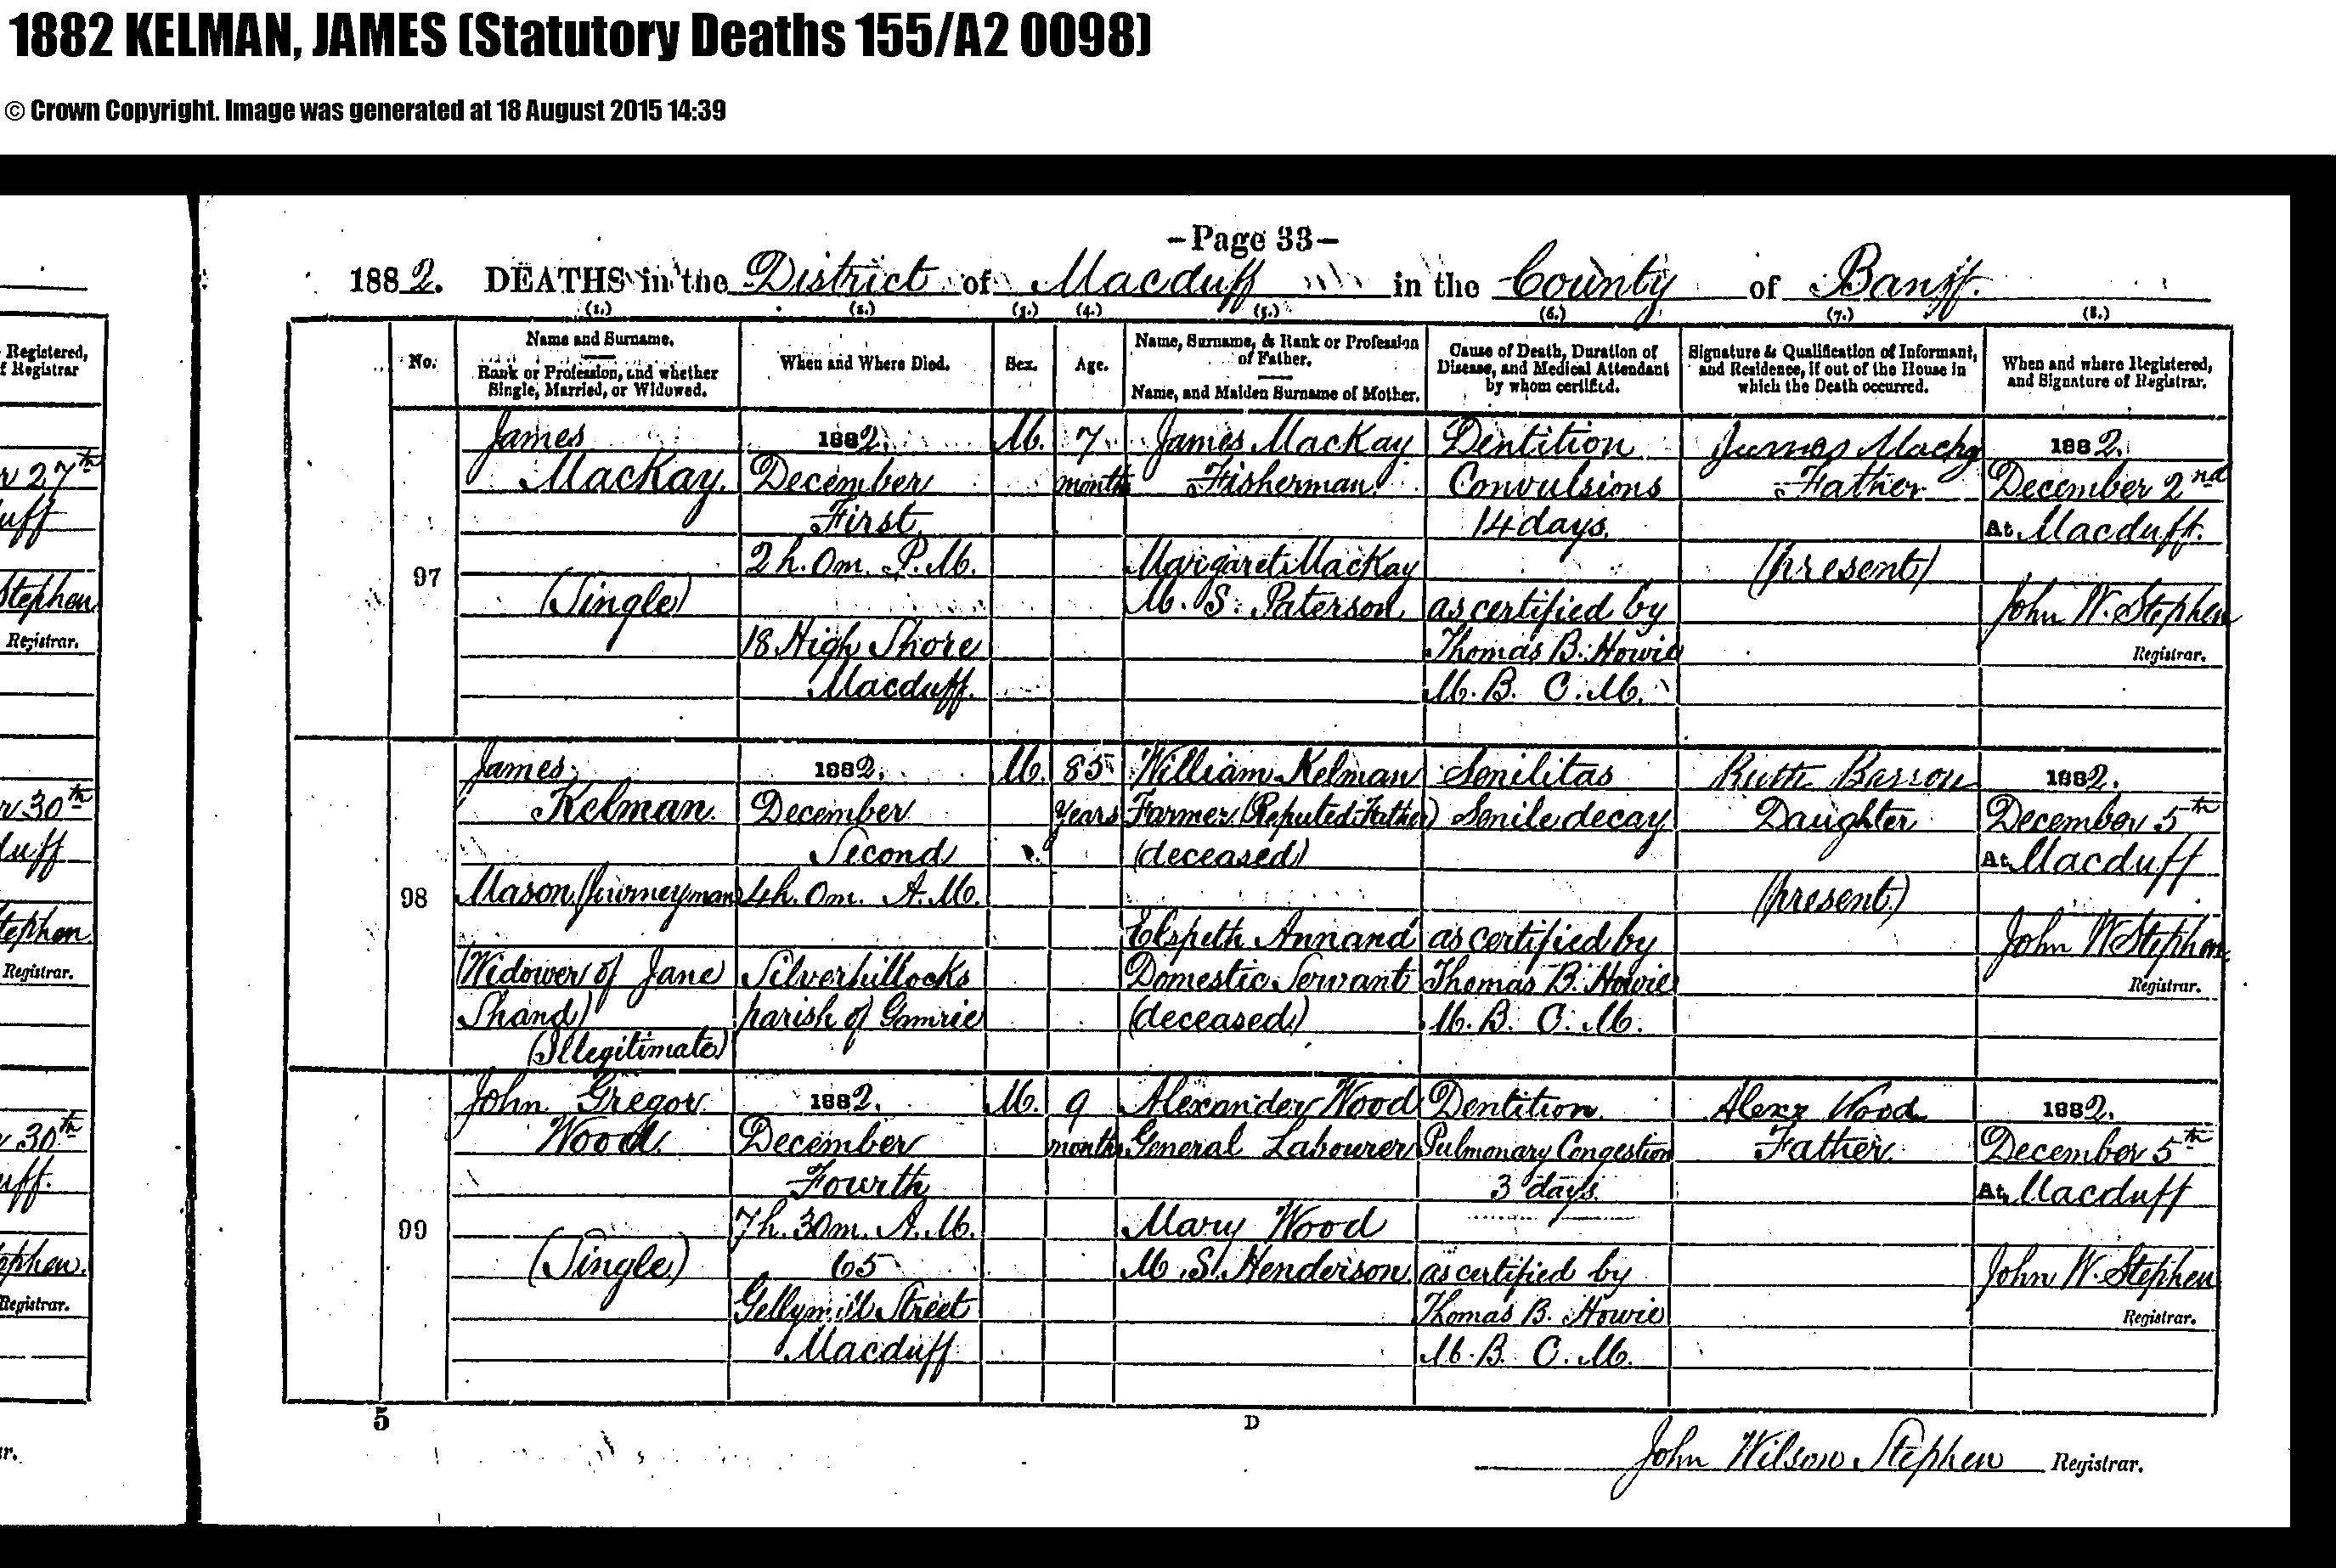 1882 KELMAN, JAMES (Statutory Deaths 155/A2 0098)
© Crown Copyright. Image was generated at 18 August 2015 14:39
-Page 33-
1882. DEATHS in the District of Macduff in the County of Banff.
(1.) (2.) (3.) (4.) (5.) (6.) (7.) (8.)
No.
Name and Surname.
Rank or Profession, and whether
Single, Married, or Widowed.
When and Where Died.
Sex.
Age.
Name, Surname, & Rank or Profession
of Father.
Name, and Maiden Surname of Mother.
Cause of Death, Duration of
Disease, and Medical Attendant
by whom certified.
Signature & Qualification of Informant,
and Residence, if out of the House in
which the Death occurred.
When and where Registered,
and Signature of Registrar.
97
James
MacKay.
(Single)
1882.
December
First
2 h. 0m. P.M.
18 High Shore
Macduff.
M.
7
months
James MacKay
Fisherman
Margaret MacKay
M. S. Paterson
Dentition
Convulsions
14 days.
as certified by
Thomas B. Howie
M. B. C. M.
James
Father
(present)
1882.
December 2nd
At Macduff.
John W. Stephen
Registrar.
98
James
Kelman.
Mason (Journeyman)
(Widower of Jane
Shand)
(Illegitimate)
1882.
December
Second
4h. 0m. A.M.
Silverhillocks
parish of Gamrie
M.
85
years
William Kelman
Farmer (Reputed Father)
(deceased)
Elspeth Annand
Domestic Servant
(deceased)
Senilitas
Senile decay
as certified by
Thomas B. Howie
M. B. C. M.
Ruth Barron
Daughter
(present)
1882.
December 5th
At Macduff
John W. Stephen
Registrar.
99
John Gregor
Wood.
(Single)
1882.
December
Fourth
7h. 30m. A.M.
65
Gellymill Street
Macduff
M.
9
months
Alexander Wood
General Labourer
Mary Wood
M. S. Henderson
Dentition
Pulmonary Congestion
3 days.
as certified by
Thomas B. Howie
M. B. C. M.
Alexr Wood
Father.
1882.
December 5th
At Macduff
John W. Stephen
Registrar.
5 D
John Wilson Stephen Registrar.
Registered,
f Registrar
27th
uff
Stephen
Registrar.
30th
duff
Stephen
Registrar.
30th
uff.
ephen.
Registrar.
r.